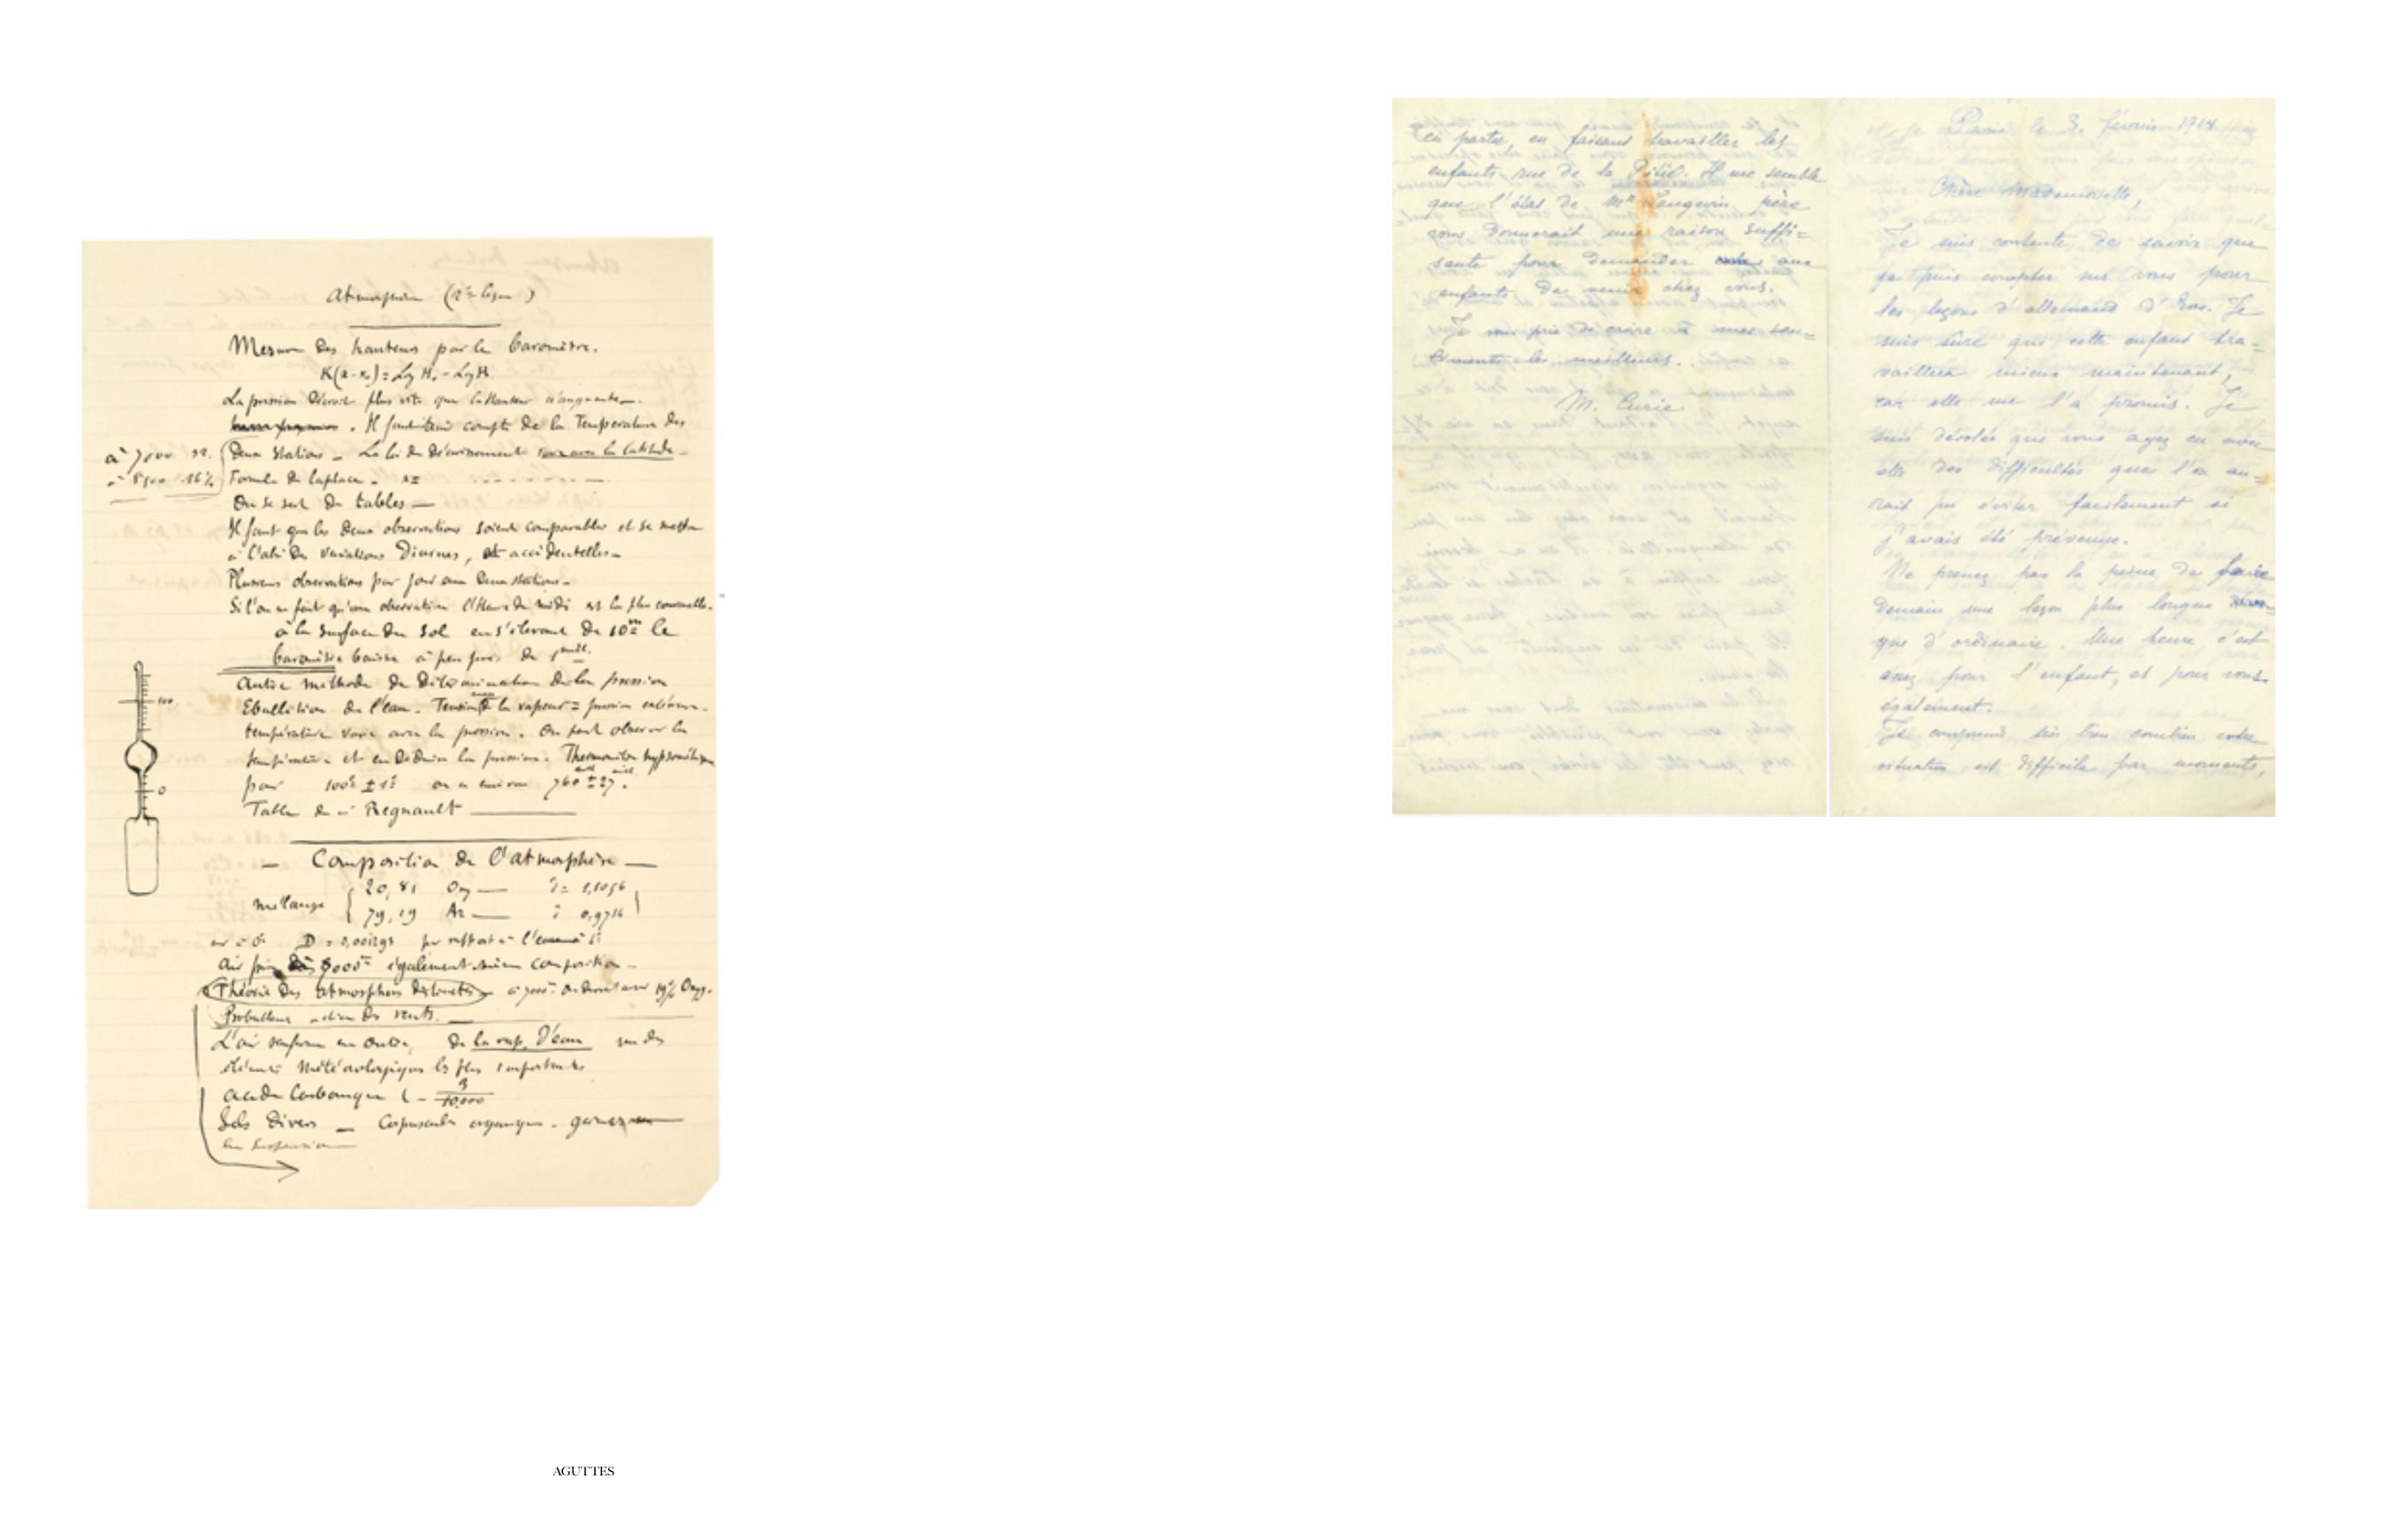 Atmosphère (2e leçon)
Mesure des hauteurs par le baromètre.
K(z-z₀) = Log H₀ - Log H
La pression décroit plus vite que la hauteur n'augmente.
. Il faut tenir compte de la Température des
à 7000
à 5500 16%
deux stations _ La loi de décroissement varie avec la latitude _
Formule de Laplace _ z =
On se sert de tables _
Il faut que les deux observations soient comparables et se mettre
à l'abri des variations diurnes, et accidentelles _
Plusieurs observations par jour aux deux stations _
Si l'on ne fait qu'une observation l'heure de midi est la plus convenable.
à la surface du sol en s'élevant de 10m le
baromètre baisse à peu près de 1mill.
Autre méthode de détermination de la pression
Ebullition de l'eau. Tension de la vapeur = pression extérieure _
température varie avec la pression. On peut observer la
température et en déduire la pression. Thermomètre hypsométrique
100
0
pour 100° ± 1° on a environ 760 ± 27.
Table de Regnault
_ Composition de l'atmosphère _
mélange
20,81 Oxy _ 1,1056
79,19 Az _ 0,9714
D = 0,001293 par rapport à l'eau
air pris à 7000m également même composition _
Théorie des atmosphères distinctes _ à 7000m on devrait avoir 19% Oxyg.
action des vents. _
L'air renferme en outre, de la vap. d'eau un des
éléments météorologiques les plus importants
acide Carbonique 3/10,000
Sels divers _ Corpuscules organiques _ germes
en suspension
en partie, en faisant travailler les
enfants rue de la Pitié. Il me semble
que l'état de Mr Langevin père
vous donnerait une raison suffi=
sante pour demander aux
enfants de venir chez vous.
Je vous prie de croire à mes sen=
timents les meilleurs.
M. Curie
Paris le 3 février 1914
Chère Mademoiselle,
Je suis contente de savoir que
je puis compter sur vous pour
les leçons d'allemand d'Eve. Je
suis sûre que cette enfant tra=
vaillera mieux maintenant,
car elle me l'a promis. Je
suis désolée que vous ayez eu avec
elle des difficultés que l'on au=
rait pu éviter facilement si
j'avais été prévenue.
Ne prenez pas la peine de faire
demain une leçon plus longue
que d'ordinaire. Une heure c'est
assez pour l'enfant, et pour vous
également.
Je comprends très bien combien votre
situation est difficile par moments,
AGUTTES